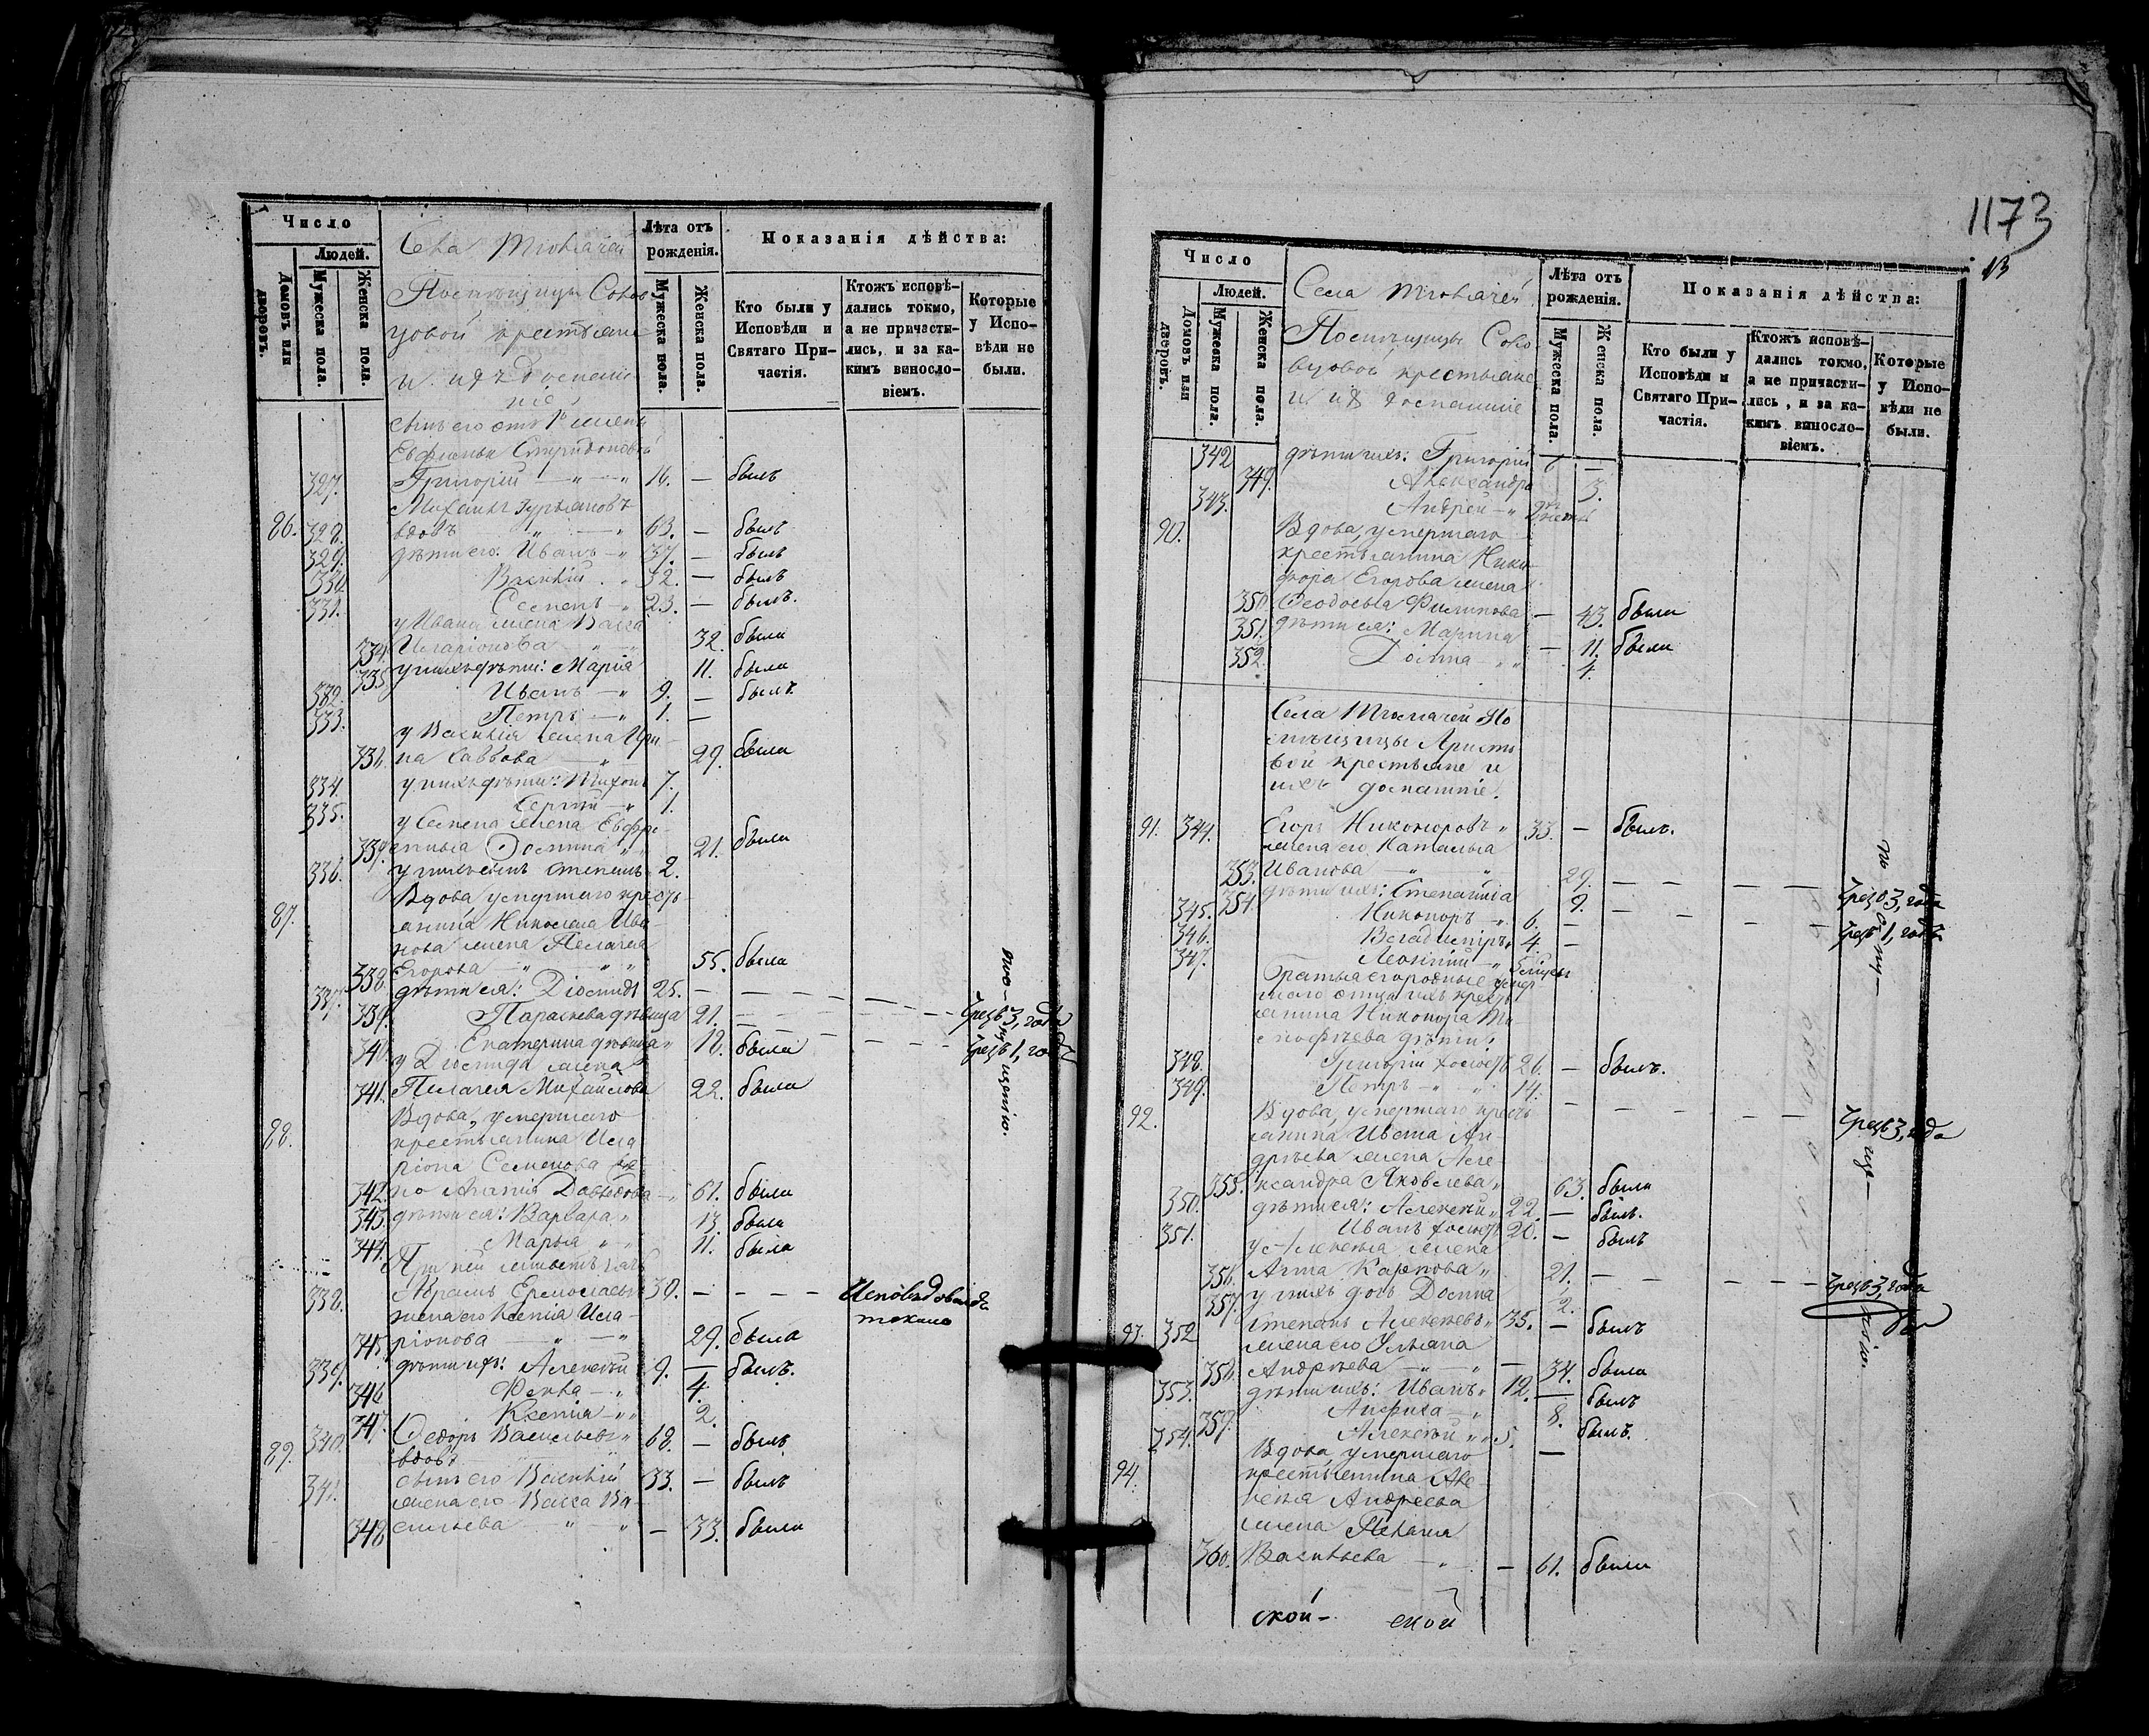 Число
Людей.
Домовъ или дворовъ.
Мужеска пола.
Женска пола.
Села
Помѣщицы
цовой крестьяне
и ихъ домаш-
ніе
Лѣта отъ рожденія.
Мужеска пола.
Женска пола.
Показанія дѣйства:
Кто были у Исповѣди и Святаго При-частія.
Ктожъ исповѣ-дались токмо, а не причасти-лись, и за ка-кимъ винослo-віемъ.
Которые у Испо-вѣди не были.
сынъ его отъ 1й жены
Евфиміи Спиридоновой
327. Григорій 16. — былъ
Михаилъ Гурьяновъ
86. 328. вдовъ 63. — былъ
329. дѣти его: Иванъ 37. — былъ
330. Василій 32. — былъ
331. Семенъ 23. — былъ.
у Ивана жена Васса
334. Иларіонова 32. была
335. у нихъ дѣти: Марія 11. была
332. Иванъ 9. — былъ
333. Петръ 1. —
у Василія жена Ири-
336. на Саввова 29. была
334. у нихъ дѣти: Тихонъ 7.
335. Сергій 1.
у Семена жена Евфи-
337. 21. была
336. у нихъ сынъ Степанъ 2.
Вдова, умершаго кресть-
87. янина Николая Ива-
нова жена Пелагея
338. Егорова 55. была
337. дѣти ея: Діомидъ 25. — — — —
339. Параскева дѣвица 21. — — — чрезъ 3, года
340. Екатерина дѣвица 18. была — — чрезъ 1, годъ
у Діомида жена
341. Пелагея Михайлова 22. была
Вдова, умершаго
88. крестьянина Ила-
ріона Семенова же-
342. на 61. была
343. дѣти ея: Варвара 13. была
344. Марья 11. была
При ней
338. Абрамъ Ермолаевъ 30. — — — — Исповѣдовался токмо
жена его Ксенія Ила-
345. ріонова 29. была
339. дѣти ихъ: Алексѣй 9. — былъ.
346. Ѳекла 4.
347. Ксенія 2.
89. 340. Ѳедоръ Васильевъ 68. — былъ
вдовъ
341. сынъ его Василій 33. — былъ
жена его Васса Ва-
348. сильева — 33. была
опу-
щенію.
1173
13
Число
Людей.
Домовъ или дворовъ.
Мужеска пола.
Женска пола.
Села
Помѣщицы Соко-
вцовой крестьяне
и ихъ домашніе
Лѣта отъ рожденія.
Мужеска пола.
Женска пола.
Показанія дѣйства:
Кто были у Исповѣди и Святаго При-частія.
Ктожъ исповѣ-дались токмо, а не причасти-лись, и за ка-кимъ винослo-віемъ.
Которые у Испо-вѣди не были.
342 дѣти ихъ: Григорій 6 —
349. Александра 3.
343. Андрей
90. Вдова, умершаго
крестьянина Ники-
фора Егорова жена
350. Ѳеодосья Филипова — 43. была
351. дѣти ея: Марина — 11. была
352. Домна 4.
Села По-
мѣщицы
вой крестьяне и
ихъ домашніе.
91. 344. Егоръ Никоноровъ 33. — былъ.
жена его Наталья
353. Иванова 29. — — — — чрезъ 3, года
354. дѣти ихъ: Степанида 9. — — — чрезъ 1, годъ
345. Никоноръ 6. —
346. Владиміръ 4. —
347. Леонтій
Братья его родные умер-
шаго отца ихъ кресть-
янина Никонора Ти-
моѳеева дѣти:
348. Григорій холостъ 26. — былъ.
349. Петръ 14. — — — — чрезъ 3, года
92. Вдова, умершаго кресть-
янина Ивана Ан-
дреева жена Але-
355. ксандра Яковлева 63. была
350. дѣти ея: Алексѣй 22. — былъ.
351. Иванъ холостъ 20. — былъ
у Алексѣя жена
356. Анна Карпова 21. — — — — чрезъ 3, года
357. у нихъ дочь Домна 2.
93. 352 Степанъ Алексѣевъ 35. — былъ
жена его Ульяна
358. Андреева — 34. была
353. дѣти ихъ: Иванъ 12. — былъ
359. Анфиса 8. былъ.
354. Алексѣй 5. —
Вдова, умершаго
94. крестьянина Але-
ксѣя Андреева
жена Пелагея
360. Васильева — 61. была
по
опу-
ще-
нію.
ской- ской